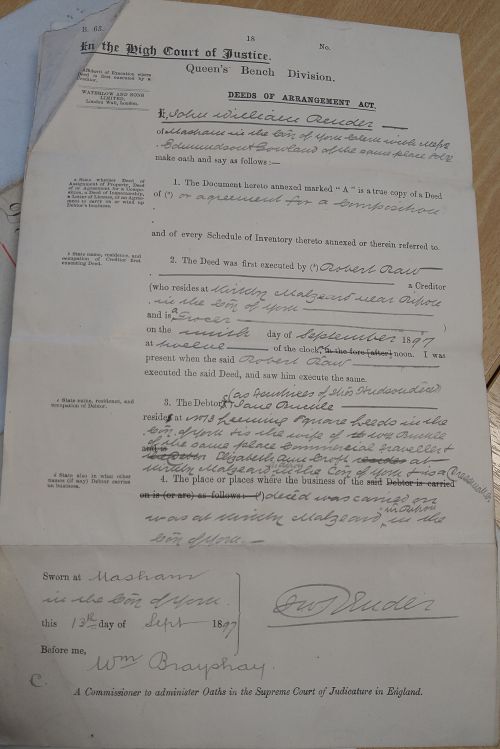 B. 65.
18 No.
In the High Court of Justice.
Queen's Bench Division.
Affidavit of Execution where Deed is first executed by a Creditor.
WATERLOW AND SONS
LIMITED,
London Wall, London.
DEEDS OF ARRANGEMENT ACT.
I, John William Render
of Masham in the Coy of York Clerk with Messrs
Edmundson & Gowland of the same place Solrs
make oath and say as follows:—
a State whether Deed of
Assignment of Property, Deed
of or Agreement for a Composi-
tion, a Deed of Inspectorship,
a Letter of Licence, or an Agree-
ment to carry on or wind up
Debtor's business.
1. The Document hereto annexed marked "A" is a true copy of a Deed
of (a) or agreement for a Composition
and of every Schedule of Inventory thereto annexed or therein referred to.
b State name, residence, and
occupation of Creditor first
executing Deed.
2. The Deed was first executed by (b) Robert Raw
a Creditor
(who resides at Kirkby Malzeard near Ripon
in the Coy of York )
and is a Grocer
on the ninth day of September 1897
at twelve of the clock, in the fore [after] noon. I was
present when the said Robert Raw
executed the said Deed, and saw him execute the same.
c State name, residence, and
occupation of Debtor.
(as
3. The Debtor Jane Buckle
resides at Square Leeds in the
Coy of York is the wife of Wm Buckle
of the same place Commercial Traveller &
Elizabeth Ann resides at
Kirkby Malzeard in the Coy of York & is a Dressmaker
d State also in what other
names (if any) Debtor carries
on business.
4. The place or places where the business of the said Debtor is carried
on is (or are) as follows: (d) decd was carried on
was at Kirkby Malzeard nr Ripon in the
Coy of York.
Sworn at Masham
in the Coy of York.
this 13th day of Sept 1897
Jno W Render
Before me,
Wm Brayshay.
C.
A Commissioner to administer Oaths in the Supreme Court of Judicature in England.